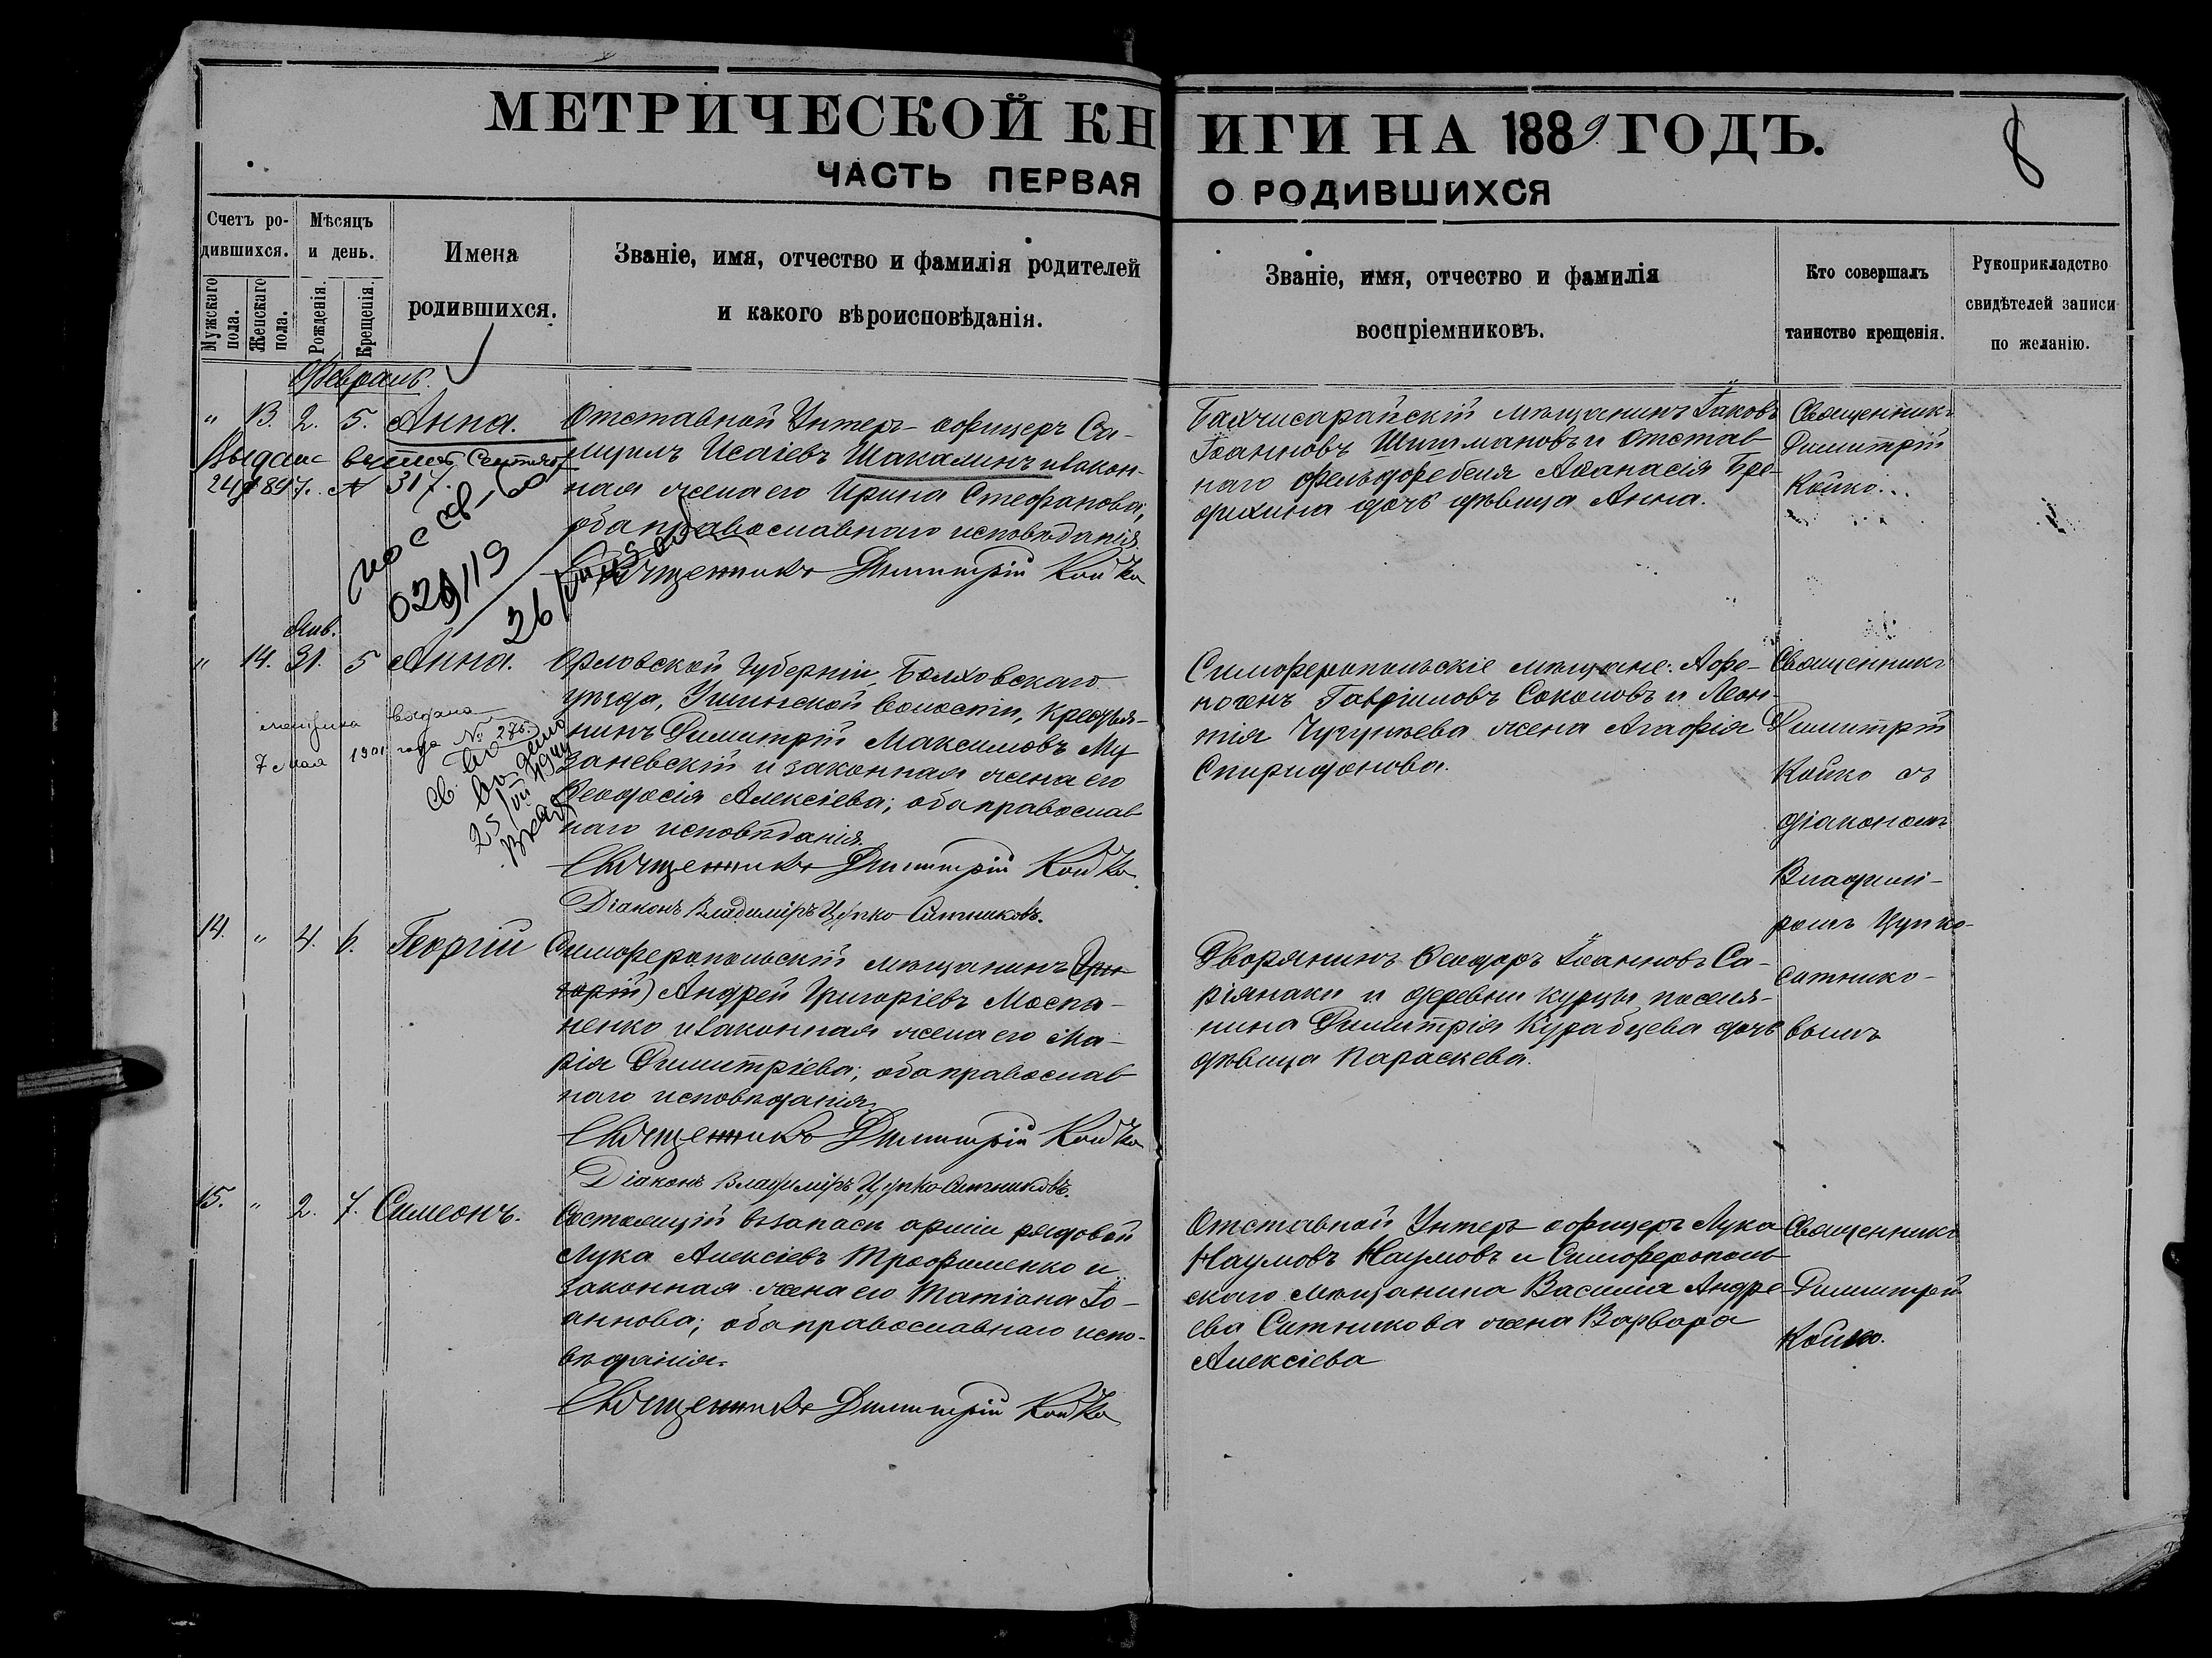 МЕТРИЧЕСКОЙ КНИГИ НА 1889 ГОДЪ.
8
ЧАСТЬ ПЕРВАЯ О РОДИВШИХСЯ
Счетъ ро-
дившихся.
Мужскаго
пола.
Женскаго
пола.
Мѣсяцъ
и день.
Рожденія.
Крещенія.
Имена
родившихся.
Званіе, имя, отчество и фамилія родителей
и какого вѣроисповѣданія.
Званіе, имя, отчество и фамилія
воспріемниковъ.
Кто совершалъ
таинство крещенія.
Рукоприкладство
свидѣтелей записи
по желанію.
Февраль.
" 13. 2. 5. Анна.
24 1897. № 317.
029119
Отставной Унтеръ-офицеръ Са-
муилъ Исаіевъ Шакалинъ и закон-
ная жена его Ирина Стефанова,
оба православнаго исповѣданія.
Священникъ Димитрій Койко
Бахчисарайскій мѣщанинъ Іаковъ
Іоанновъ Шишмановъ и отстав-
наго фельдфебеля Аѳанасія
дочь дѣвица Анна.
Священникъ
Димитрій
Койко.
Янв.
" 14. 31. 5 Анна.
метрика выдана
7 мая 1901 года № 276.
Орловской Губерніи, Болховскаго
уѣзда, волости, крестья-
нинъ Димитрій Максимовъ Му
заневскій и законная жена его
Ѳеодосія Алексіева; оба православ
наго исповѣданія.
Священникъ Димитрій Койко
Діаконъ Владиміръ Цупко-Ситниковъ.
Симферопольскіе мѣщане: Аѳи-
ногенъ Гавріиловъ Соколовъ и Леон-
тія жена Агафія
Спиридонова.
Священникъ
Димитрій
Койко съ
діакономъ
Владимі-
ромъ Цупко-
ситнико-
вымъ
14. " 4. 6. Георгій
Симферопольскій мѣщанинъ (Гри-
горій) Андрей Григоріевъ Моспа-
ненко и законная жена его Ма-
рія Димитріева; оба православ
наго исповѣданія
Священникъ Димитрій Койко
Діаконъ Владиміръ Цупко-Ситниковъ.
Дворянинъ Ѳеодоръ Іоанновъ Са-
ріянаки и деревни Курцы поселя-
нина Димитрія Курабцева дочь
дѣвица Параскева.
15. " 2. 7. Симеонъ.
Состоящій въ запасѣ арміи рядовой
Лука Алексіевъ Трофименко и
законная жена его Татіана Іо-
аннова; оба православнаго испо-
вѣданія.
Священникъ Димитрій Койко
Отставной Унтеръ офицеръ Лука
Наумовъ Наумовъ и Симферополь
скаго мѣщанина Василія Андре-
ева Ситникова жена Варвара
Алексіева
Священникъ
Димитрій
Койко.